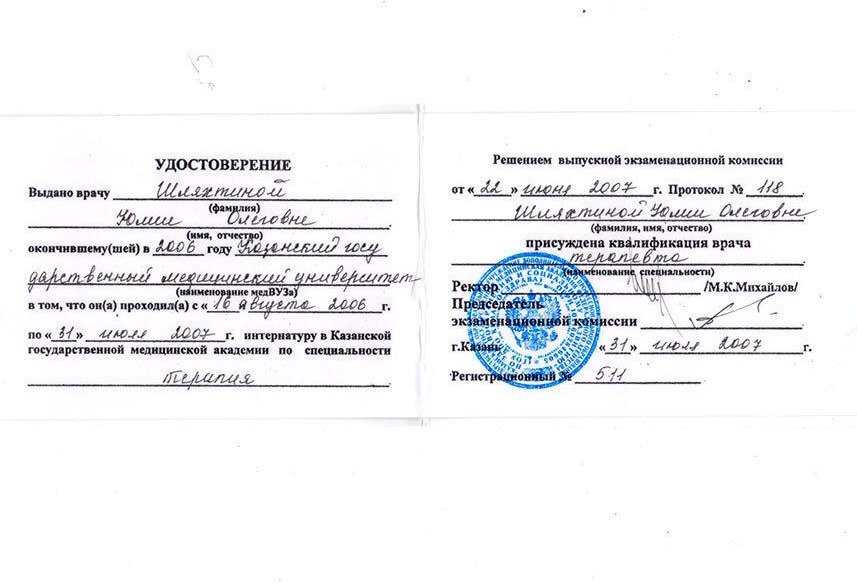 УДОСТОВЕРЕНИЕ
Выдано врачу Шляхтиной
(фамилия)
Юлии Олеговне
(имя, отчество)
окончившему(шей) в 2006 году Казанский госу
дарственный медицинский университет
(наименование медВУЗа)
в том, что он(а) проходил(а) с « 16 августа 2006 г.
по « 31 » июля 2007 г. интернатуру в Казанской
государственной медицинской академии по специальности
терапия
Решением выпускной экзаменационной комиссии
от « 22 » июня 2007 г. Протокол № 118
Шляхтиной Юлии Олеговне
(фамилия, имя, отчество)
присуждена квалификация врача
терапевта
(наименование специальности)
Ректор /М.К.Михайлов/
Председатель
экзаменационной комиссии
г.Казань « 31 » июля 2007 г.
Регистрационный № 511